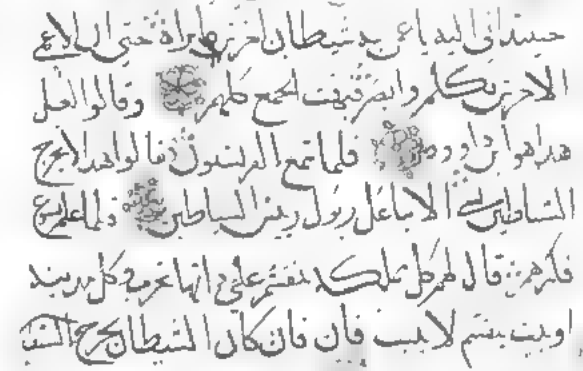 حينيد اتى اليه باعمى به شيطان اخرس فابراه حتى ان الاعمى
الاخرس تكلم وابصر فبهت الجمع كلهم وقالوا لعل
هدا هو ابن داوود فلما سمع الفريسيون قالوا هدا لا يخرج
الشياطين الا بباعل زبول رييس الشياطين فلما علم يسوع
فكرهم قال لهم كل مملكه تنقسم على داتها تخرب وكل مدينه
او بيت ينقسم لا يثبت فان كان الشيطان يخرج الشيطان